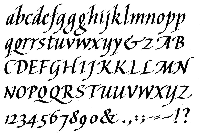 abcdefggghijklmnopp
qrrsstuvwxyy&zAB
CDEFGHIJKLLMN
NOPQRSTUVWXYZ
1234567890&.,:;-–!?